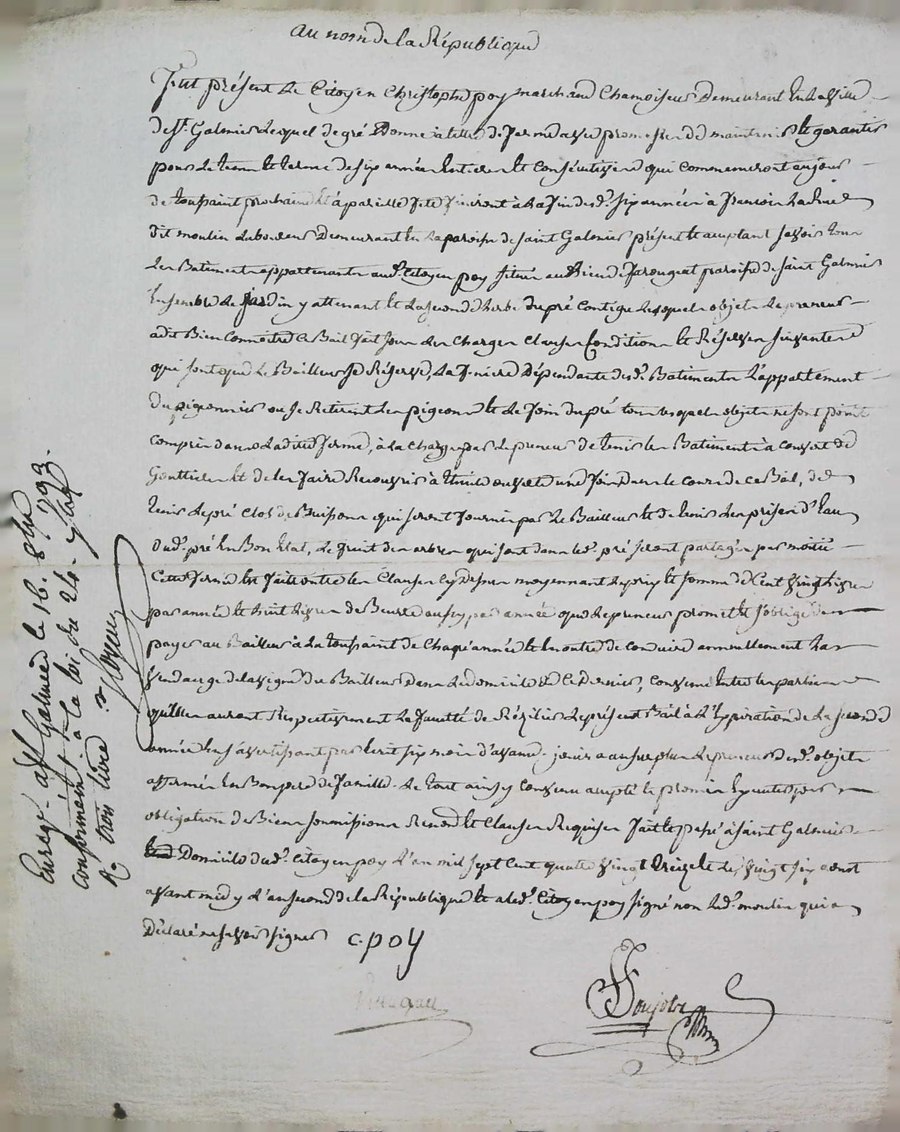 au nom de la République
Fut présent le Citoyen Christophe poy marchand Chamoiseur Demeurant En la ville
de St. Galmier Lequel de gré Donne à titre de ferme avec promesse de maintenir et garantir
pour le tems et terme de six années Entieres et Consécutives qui commenceront au jour
de toussaint prochaine et à pareille fête finiront à la fin desd. six années à francois
dit moulin Laboureur Demeurant En la paroisse de saint Galmier présent et acceptant savoir tous
Les Batiments appartenants aud. Citoyen poy situés au Lieu de paroisse de saint Galmier
Ensemble Le Jardin y attenant et la seconde herbe du pré Contigu Lesquels objets le preneur
a dit Bien Connoitre Ce Bail fait sous les Charges Clauses Conditions et Réserves suivantes
qui sont que Le Bailleur se Réserve, La Dépendante desd. Batiments L'appartement
du pigeonnier ou se Retirent Les pigeons et Le foin du pré tous lesquels objets ne sont point
Compris dans Ladite ferme, à la Charge par Le preneur de tenir les Batiments à couvert de
Gouttieres et de les faire Recouvrir à thuile ouverte une fois dans le cours de ce Bail, de
tenir Le pré Clos de Buissons qui seront fournis par Le Bailleur et de tenir Les prises d'Eau
dud. pré En Bon Etat, Le fruit des arbres qui sont dans led. pré seront partagés par moitié
Cette ferme Est faite outre les Clauses cy dessus moyennant Le prix et somme de Cent vingt livres
par année et huit livres de Beurre aussy par année que Le preneur promet et s'oblige de
payer au Bailleur à La toussaint de Chaque année et En outre de conduire annuellement La
vendange de la vigne du Bailleur dans Le domicile de Ce Dernier, Convenu Entre les parties
qu'elles auront Respectivement La faculté de Résilier Le présent Bail à L'Expiration de La seconde
année En s'avertissant par Ecrit six mois d'avance. jouira au surplus Le preneur desd. objets
affermés En Bon pere de famille. Le tout ainsy Convenu accepté et promis Exécuter par
obligation de Biens soumissions Renond. et Clauses Requises fait et passé à saint Galmier
Domicile dud. Citoyen poy L'an mil sept Cent quatre vingt treize et Le vingt six aout
avant midy L'an second de la République et a led. Citoyen poy signé non Led. moulin qui a
Déclaré ne savoir signer c. poy
Enregé. à St Galmier le 16. 8bre 1793.
conformément à la loi du 24.
R. trois livres